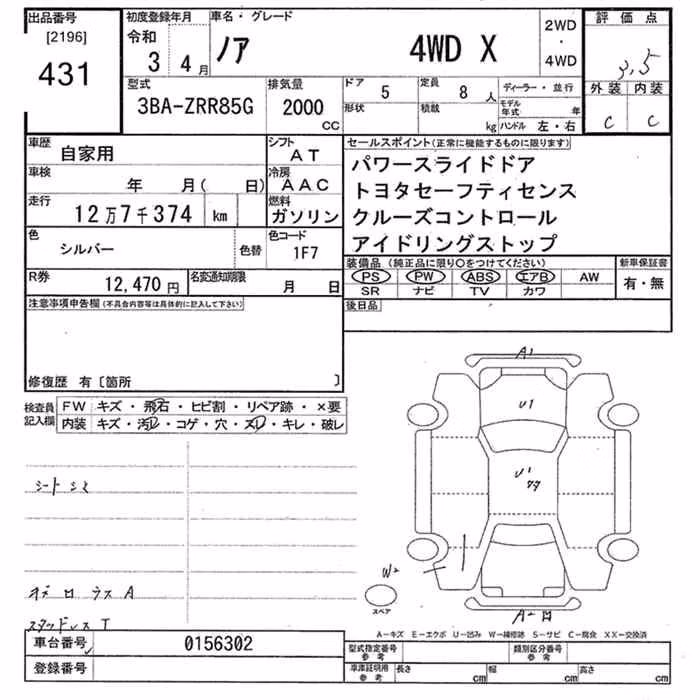 出品番号 初度登録年月 車名・グレード 2WD・4WD 評価点
[2196] 令和
431 3 4月 ノア 4WD X 3.5
型式 排気量 ドア 5 定員 8人 ディーラー・並行 外装 内装
3BA-ZRR85G 2000cc 形状 積載 kg モデル年式 年 ハンドル 左・右 C C
車歴 自家用 シフト AT
車検 年 月( 日) 冷房 AAC
走行 12万7千374 km 燃料 ガソリン
色 シルバー 色替 色コード 1F7
R券 12,470円 名変通知期限 月 日
セールスポイント(正常に機能するものに限ります)
パワースライドドア
トヨタセーフティセンス
クルーズコントロール
アイドリングストップ
装備品(純正品に限り○をつけてください) 新車保証書
PS PW ABS エアB AW 有・無
SR ナビ TV カワ
後日品
注意事項申告欄(不具合内容等は具体的に記入して下さい)
修復歴 有〔箇所 〕
検査員記入欄 FW キズ・飛石・ヒビ割・リペア跡・×要
内装 キズ・汚レ・コゲ・穴・スレ・キレ・破レ
シートシミ
A1
U1
U1
W2
スペア
A
スタッドレス T
A-キズ E-エクボ U-凹み W-補修跡 S-サビ C-腐食 XX-交換済
車台番号 0156302
登録番号
型式指定番号 参考 類別区分番号 参考
車庫証明用 参考 長さ cm 幅 cm 高さ cm